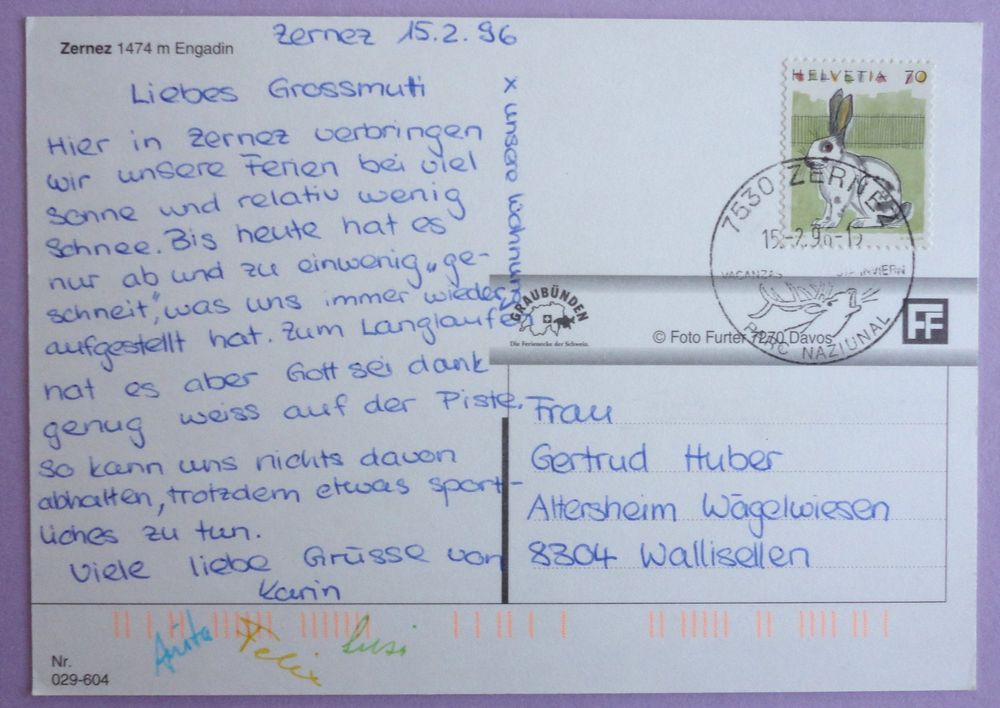 Zernez 1474 m Engadin
Zernez 15.2.96
Liebes Grossmuti
Hier in Zernez verbringen
wir unsere Ferien bei viel
Sonne und relativ wenig
Schnee. Bis heute hat es
nur ab und zu einwenig „ge-
schneit", was uns immer wieder
aufgestellt hat. Zum Langlaufen
hat es aber Gott sei dank
genug weiss auf der Piste.
So kann uns nichts davon
abhalten, trotzdem etwas sport-
liches zu tun.
Viele liebe Grüsse von
Karin
Anita Felix Susi
x unsere Wohnung
HELVETIA 70
7530 ZERNEZ
VACANZAS INVIERN
PARC NAZIUNAL
GRAUBÜNDEN
Die Ferienecke der Schweiz.
© Foto Furter 7270 Davos
FF
Frau
Gertrud Huber
Altersheim Wägelwiesen
8304 Wallisellen
Nr.
029-604